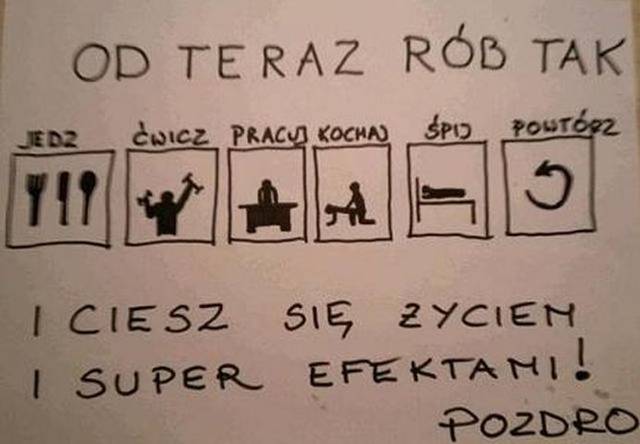 OD TERAZ RÓB TAK
JEDZ ĆWICZ PRACUJ KOCHAJ ŚPIJ POWTÓRZ
I CIESZ SIĘ ŻYCIEM
I SUPER EFEKTAMI!
POZDRO